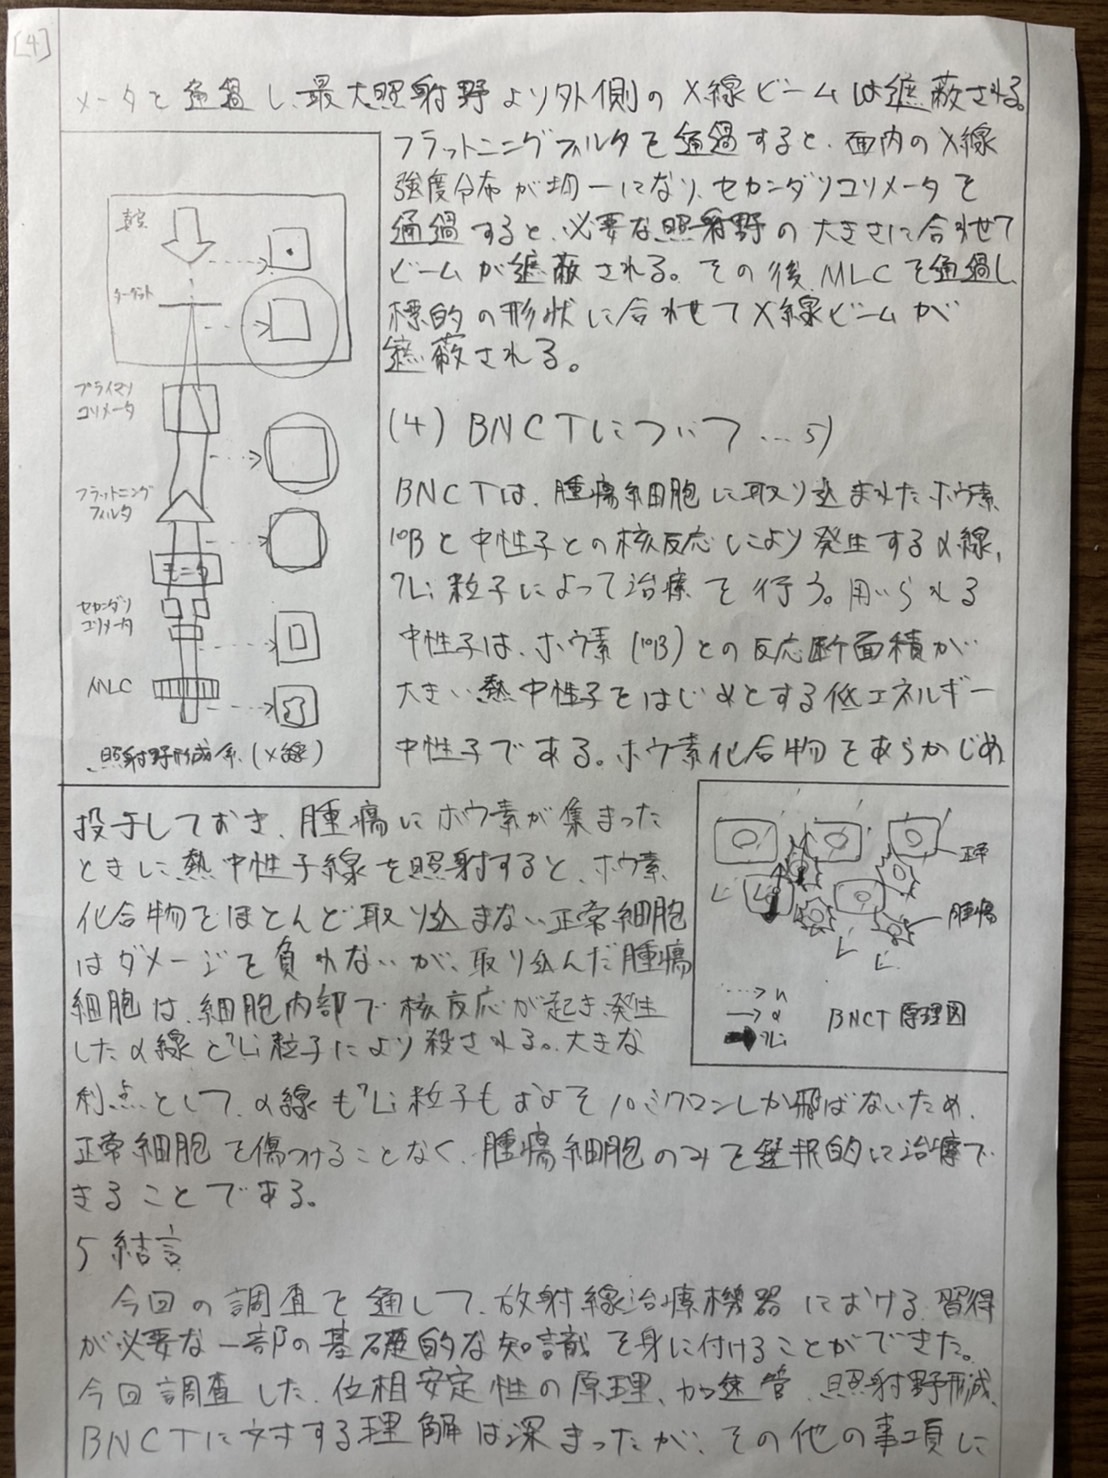 [4]
メータを通過し、最大照射野より外側のX線ビームは遮蔽される。
フラットニングフィルタを通過すると、面内のX線
強度分布が均一になり、セカンダリコリメータを
通過すると、必要な照射野の大きさに合わせて
ビームが遮蔽される。その後、MLCを通過し
標的の形状に合わせてX線ビームが
遮蔽される。
真空
ターゲット
プライマリ
コリメータ
フラットニング
フィルタ
モニタ
セカンダリ
コリメータ
MLC
照射野形成系(X線)
(4) BNCTについて…5)
BNCTは、腫瘍細胞に取り込まれたホウ素
¹⁰Bと中性子との核反応により発生するα線、
⁷Li粒子によって治療を行う。用いられる
中性子は、ホウ素(¹⁰B)との反応断面積が
大きい熱中性子をはじめとする低エネルギー
中性子である。ホウ素化合物をあらかじめ
投与しておき、腫瘍にホウ素が集まった
ときに熱中性子線を照射すると、ホウ素
化合物をほとんど取り込まない正常細胞
はダメージを負わないが、取り込んだ腫瘍
細胞は、細胞内部で核反応が起き、発生
したα線と⁷Li粒子により殺される。大きな
利点として、α線も⁷Li粒子もおよそ10ミクロンしか飛ばないため、
正常細胞を傷つけることなく、腫瘍細胞のみを選択的に治療で
きることである。
正常
腫瘍
n
α
⁷Li
BNCT 原理図
5 結言
今回の調査を通して、放射線治療機器における、習得
が必要な一部の基礎的な知識を身に付けることができた。
今回調査した、位相安定性の原理、加速管、照射野形成、
BNCTに対する理解は深まったが、その他の事項に